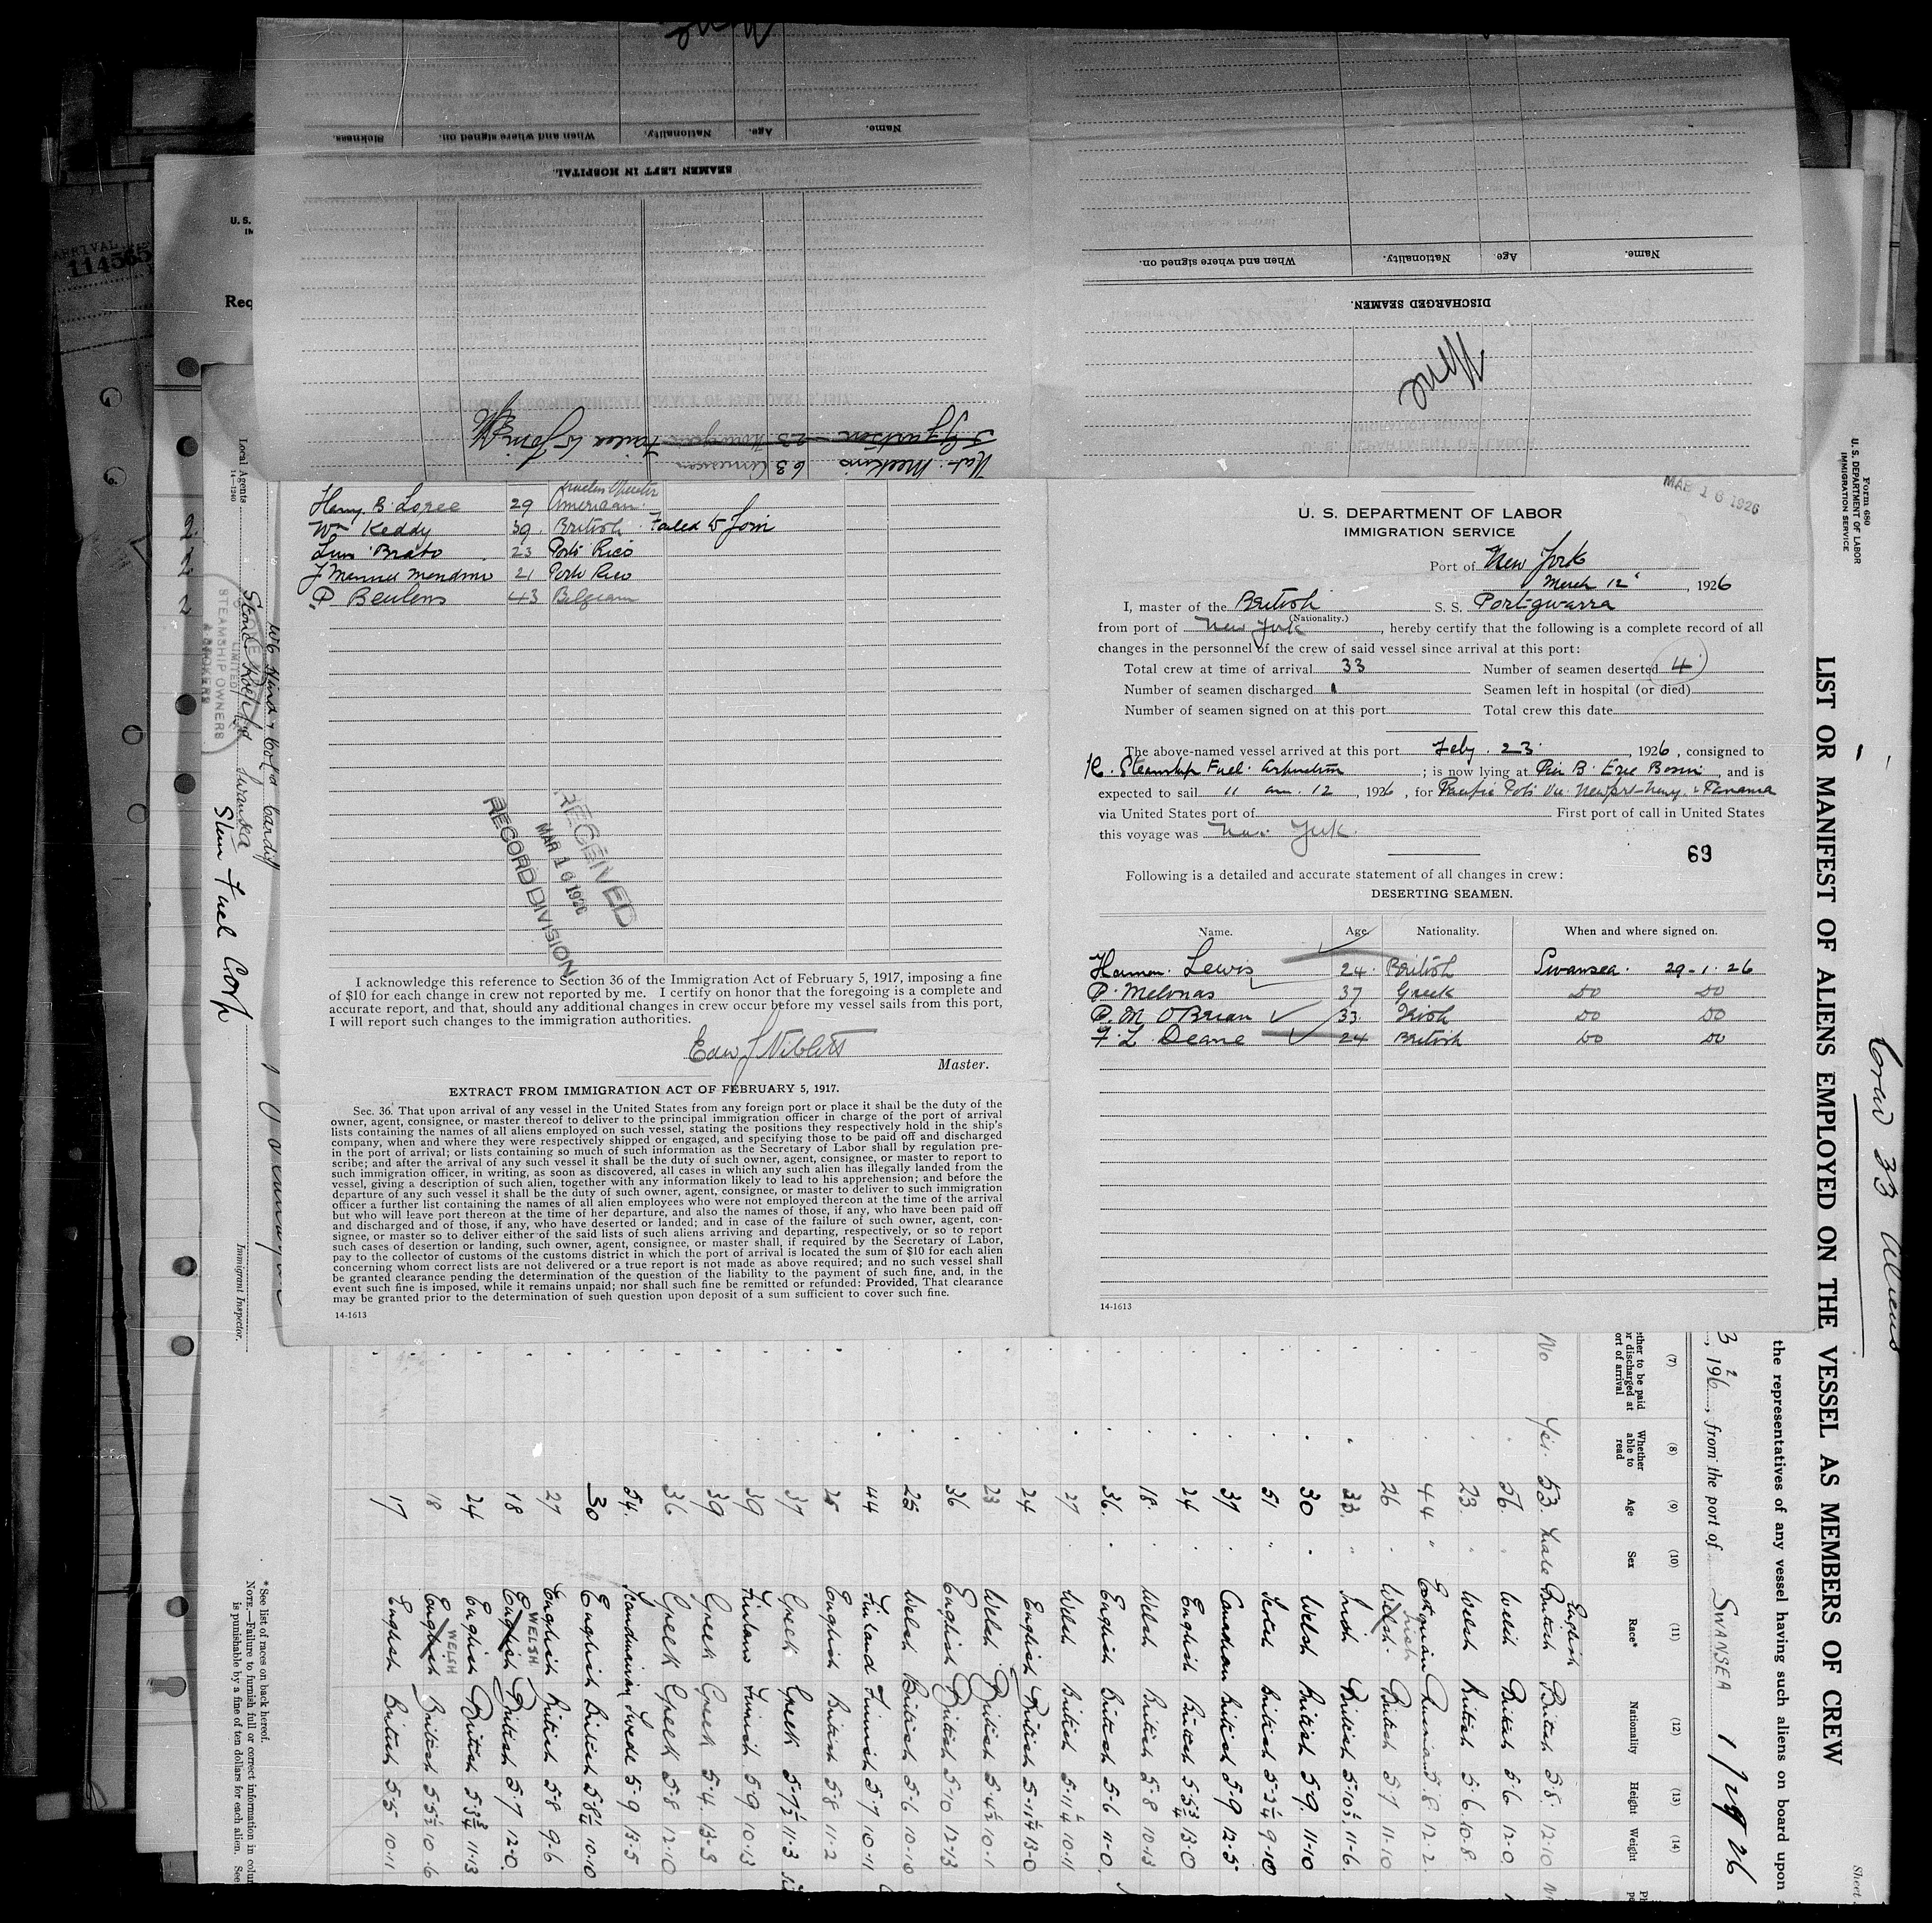 ARRIVAL
114565
U. S.
Req
Name.
Age.
Nationality.
When and where signed on.
Sickness.
SEAMEN LEFT IN HOSPITAL.
Name.
Age
Nationality.
When and where signed on.
DISCHARGED SEAMEN.
None
Nat. Meekins 63 American
23 Norwegian Failed to Join
Harry B. Loree 29 American
Wm Keddy 39 British Failed to Join
Luis Brato 23 Porto Rico
J Manuel 21 Porto Rico
P. Beulens 43 Belgian
RECEIVED
MAR 16 1926
RECORD DIVISION
I acknowledge this reference to Section 36 of the Immigration Act of February 5, 1917, imposing a fine
of $10 for each change in crew not reported by me. I certify on honor that the foregoing is a complete and
accurate report, and that, should any additional changes in crew occur before my vessel sails from this port,
I will report such changes to the immigration authorities.
Edw J Nibletts
Master.
EXTRACT FROM IMMIGRATION ACT OF FEBRUARY 5, 1917.
Sec. 36. That upon arrival of any vessel in the United States from any foreign port or place it shall be the duty of the
owner, agent, consignee, or master thereof to deliver to the principal immigration officer in charge of the port of arrival
lists containing the names of all aliens employed on such vessel, stating the positions they respectively hold in the ship's
company, when and where they were respectively shipped or engaged, and specifying those to be paid off and discharged
in the port of arrival; or lists containing so much of such information as the Secretary of Labor shall by regulation pre-
scribe; and after the arrival of any such vessel it shall be the duty of such owner, agent, consignee, or master to report to
such immigration officer, in writing, as soon as discovered, all cases in which any such alien has illegally landed from the
vessel, giving a description of such alien, together with any information likely to lead to his apprehension; and before the
departure of any such vessel it shall be the duty of such owner, agent, consignee, or master to deliver to such immigration
officer a further list containing the names of all alien employees who were not employed thereon at the time of the arrival
but who will leave port thereon at the time of her departure, and also the names of those, if any, who have been paid off
and discharged and of those, if any, who have deserted or landed; and in case of the failure of such owner, agent, con-
signee, or master so to deliver either of the said lists of such aliens arriving and departing, respectively, or so to report
such cases of desertion or landing, such owner, agent, consignee, or master shall, if required by the Secretary of Labor,
pay to the collector of customs of the customs district in which the port of arrival is located the sum of $10 for each alien
concerning whom correct lists are not delivered or a true report is not made as above required; and no such vessel shall
be granted clearance pending the determination of the question of the liability to the payment of such fine, and, in the
event such fine is imposed, while it remains unpaid; nor shall such fine be remitted or refunded: Provided, That clearance
may be granted prior to the determination of such question upon deposit of a sum sufficient to cover such fine.
14-1613
MAR 16 1926
U. S. DEPARTMENT OF LABOR
IMMIGRATION SERVICE
Port of New York
March 12, 1926
I, master of the British S. S. Portgwarra
(Nationality.)
from port of New York, hereby certify that the following is a complete record of all
changes in the personnel of the crew of said vessel since arrival at this port:
Total crew at time of arrival 33 Number of seamen deserted 4
Number of seamen discharged 1 Seamen left in hospital (or died)
Number of seamen signed on at this port Total crew this date
The above-named vessel arrived at this port Feby. 23, 1926, consigned to
Steamship Fuel ; is now lying at Pier B. Erie Basin, and is
expected to sail 11 am. 12, 1926, for Pacific Pots Via Newport-News & Panama
via United States port of First port of call in United States
this voyage was New York.
69
Following is a detailed and accurate statement of all changes in crew:
DESERTING SEAMEN.
Name. Age Nationality. When and where signed on.
Harman Lewis 24 British Swansea. 29-1-26
P. Melonas 37 Greek Do Do
P. M. O'Brian 33 Irish Do Do
F. L. Deane 24 British Do Do
14-1613
Form 680
U. S. DEPARTMENT OF LABOR
IMMIGRATION SERVICE
LIST OR MANIFEST OF ALIENS EMPLOYED ON THE VESSEL AS MEMBERS OF CREW
Crew 33 Aliens
Sheet
the representatives of any vessel having such aliens on board upon
, 1926, from the port of SWANSEA 1/29 26
(7) (8) (9) (10) (11) (12) (13) (14)
ther to be paid
r discharged at
ort of arrival
Whether
able to
read
Age
Sex
Race*
Nationality
Height
Weight
No Yes. 53 Male English British British 5-8 12-10
56 Welsh British 5-6 12-0
23 Welsh British 5-6 10-8
44 5-8 12-2
26 Welsh Irish British 5-7 11-10
33 Irish British 5-10½ 11-6
30 Welsh British 5-9 11-10
51 Scotch British 5-3¼ 9-10
37 Canadian British 5-9 12-5
24 English British 5-5¾ 13-0
18 Welsh British 5-8 10-13
36 English British 5-6 11-0
27 Welsh British 5-11¼ 10-11
24 English British 5-11¼ 13-0
23 Welsh British 5-4½ 10-1
36 English British 5-10 12-13
25 Welsh British 5-6 10-10
44 Finland Finnish 5-7 10-11
25 English British 5-8 11-2
37 Greek Greek 5-7½ 11-3
39 Finland Finnish 5-9 10-13
39 Greek Greek 5-4 13-3
36 Greek Greek 5-8 12-10
54 Scandinavian Swede 5-9 13-5
30 English British 5-8¼ 10-10
27 English British 5-8 9-6
18 English WELSH British 5-7 12-0
24 English British 5-3¾ 11-13
18 English WELSH British 5-5½ 10-6
17 English British 5-5 10-11
Local Agents
14-1240
Stone Rolfe Ltd Swansea
STONE
LIMITED
STEAMSHIP OWNERS
& BROKERS
Wm Hind & Co Ltd Cardiff
Stern Fuel Corp
Immigrant Inspector.
*See list of races on back hereof.
NOTE.—Failure to furnish full or correct information in colu
is punishable by a fine of ten dollars for each alien. See